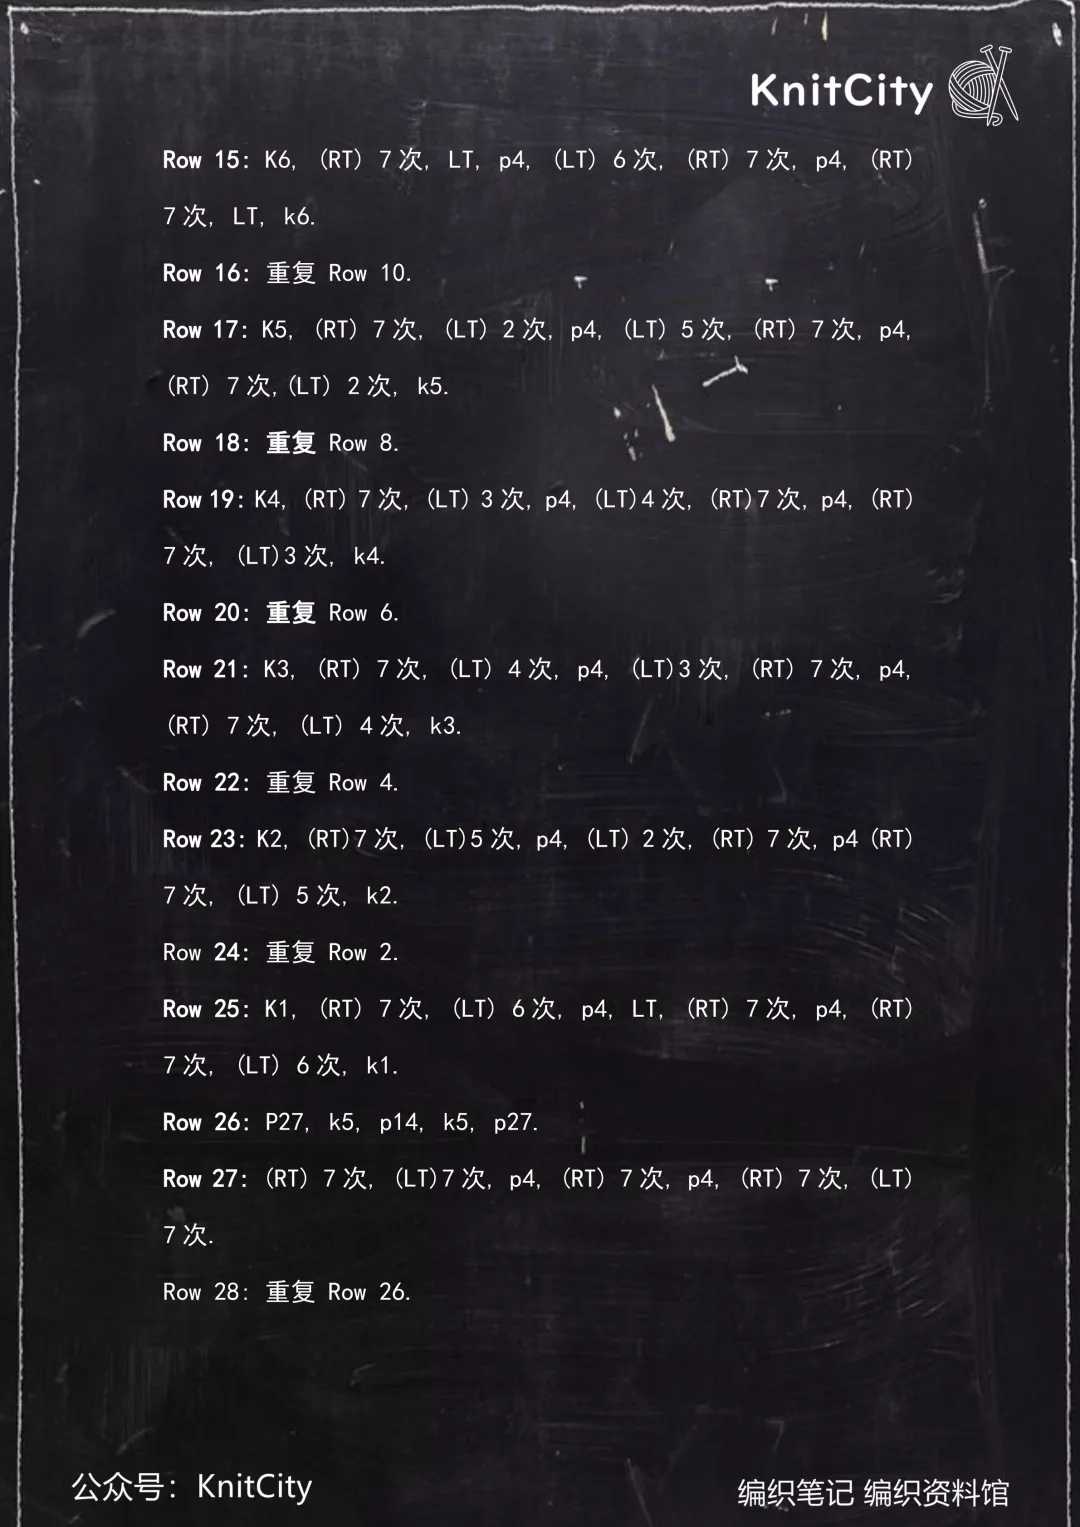 KnitCity
Row 15: K6, (RT) 7 次, LT, p4, (LT) 6 次, (RT) 7 次, p4, (RT)
7 次, LT, k6.
Row 16: 重复 Row 10.
Row 17: K5, (RT) 7 次, (LT) 2 次, p4, (LT) 5 次, (RT) 7 次, p4,
(RT) 7 次, (LT) 2 次, k5.
Row 18: 重复 Row 8.
Row 19: K4, (RT) 7 次, (LT) 3 次, p4, (LT) 4 次, (RT) 7 次, p4, (RT)
7 次, (LT) 3 次, k4.
Row 20: 重复 Row 6.
Row 21: K3, (RT) 7 次, (LT) 4 次, p4, (LT) 3 次, (RT) 7 次, p4,
(RT) 7 次, (LT) 4 次, k3.
Row 22: 重复 Row 4.
Row 23: K2, (RT) 7 次, (LT) 5 次, p4, (LT) 2 次, (RT) 7 次, p4 (RT)
7 次, (LT) 5 次, k2.
Row 24: 重复 Row 2.
Row 25: K1, (RT) 7 次, (LT) 6 次, p4, LT, (RT) 7 次, p4, (RT)
7 次, (LT) 6 次, k1.
Row 26: P27, k5, p14, k5, p27.
Row 27: (RT) 7 次, (LT) 7 次, p4, (RT) 7 次, p4, (RT) 7 次, (LT)
7 次.
Row 28: 重复 Row 26.
公众号：KnitCity
编织笔记 编织资料馆